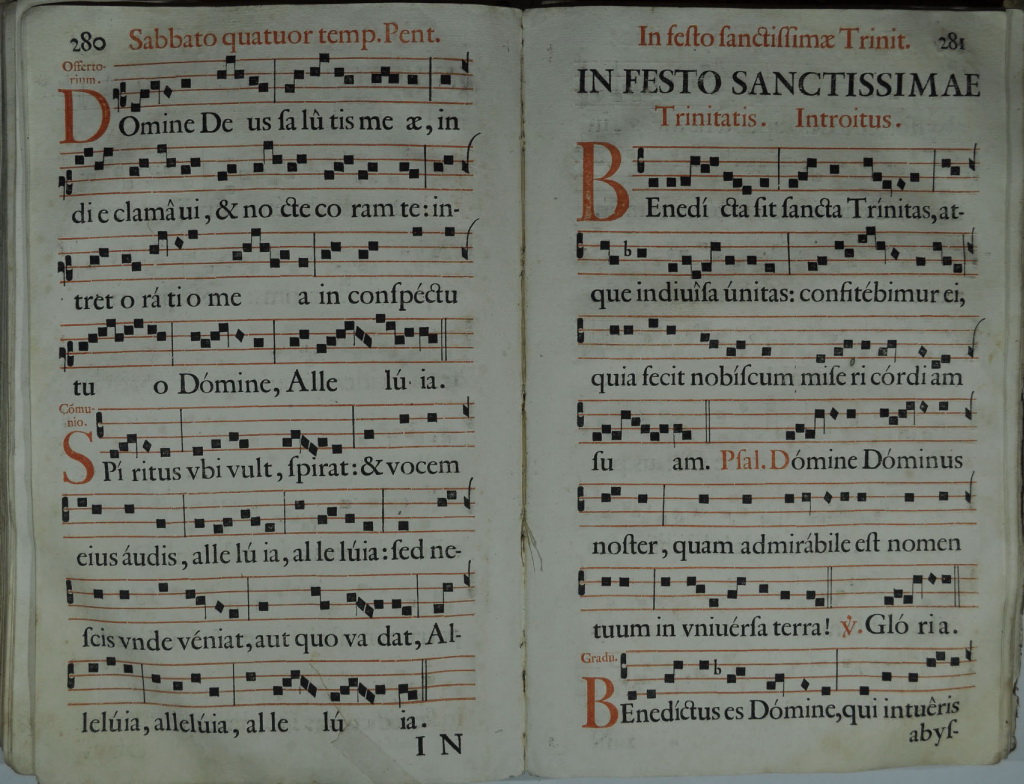 280 Sabbato quatuor temp. Pent.
Offerto-
rium.
DOmine De us ſa lû tis me æ, in
di e clamâ ui, & no cte co ram te: in-
tret o rá ti o me a in conſpéctu
tu o Dómine, Alle lú ia.
Cómu-
nio.
SPí ritus vbi vult, ſpirat: & vocem
eius áudis, alle lú ia, al le lúia: ſed ne-
ſcis vnde véniat, aut quo va dat, Al-
lelúia, allelúia, al le lú ia.
I N
In feſto ſanctiſſimæ Trinit. 281
IN FESTO SANCTISSIMAE
Trinitatis. Introitus.
BEnedí cta ſit ſancta Trínitas, at-
que indiuîſa únitas: confitébimur ei,
quia fecit nobíſcum miſe ri córdi am
ſu am. Pſal. Dómine Dóminus
noſter, quam admirábile eſt nomen
tuum in vniuérſa terra! ℣. Gló ri a.
Gradu.
BEnedíctus es Dómine, qui intuêris
abyſ-